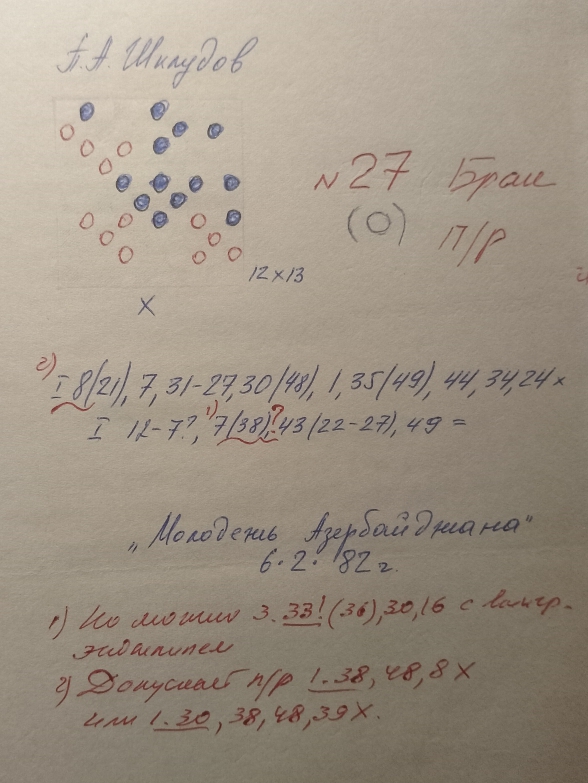 П.А. Шклудов
№27 Брак
(О) П/р
12x13
X
2)
I 8(21), 7, 31-27, 30(48), 1, 35(49), 44, 34, 24x
I 12-7?, 1) 7(38)? 43(22-27), 49=
„Молодежь Азербайджана"
6.2. 82г.
1) Но можно 3.33!(36), 30, 16 с выигр.
эндшпилем
2) Допускает п/р 1.38, 48, 8X
или 1.30, 38, 48, 39X.